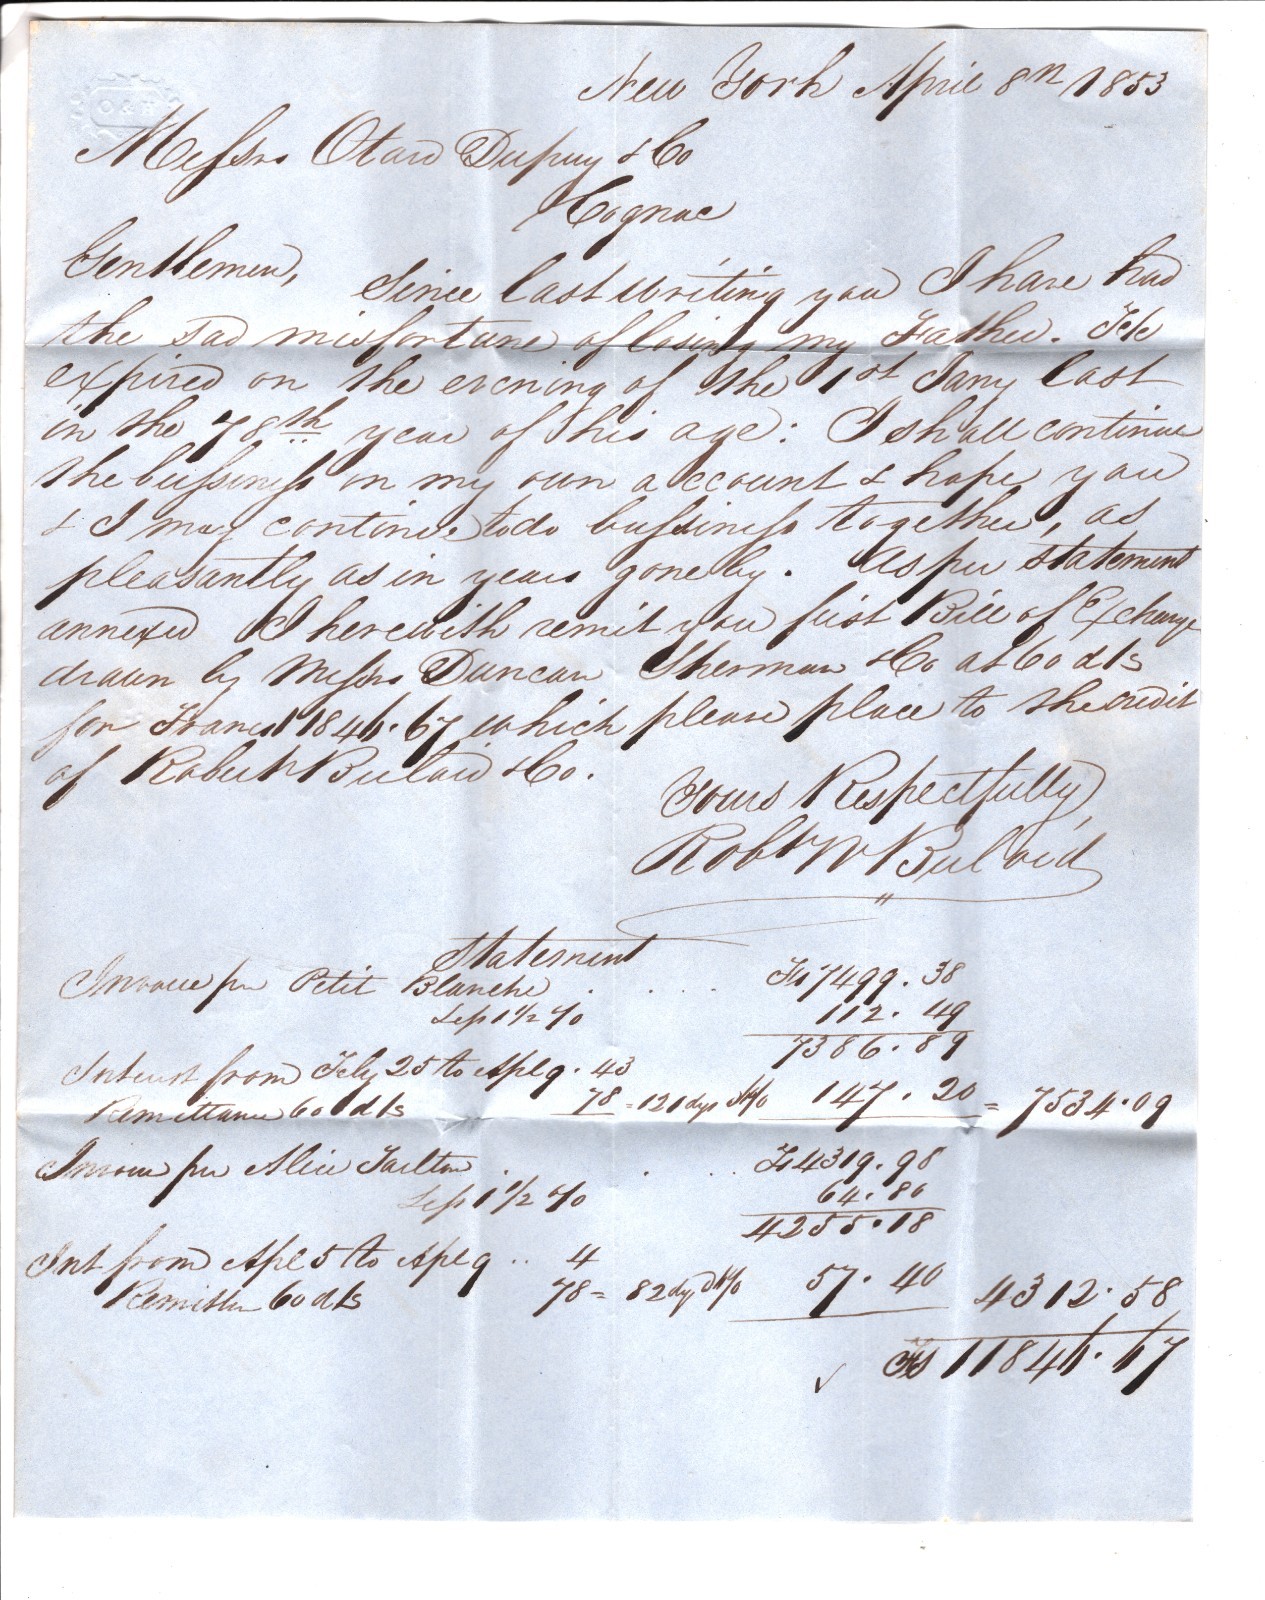 O & H
New York April 8th 1853
Messrs Otard Dupuy & Co
Cognac
Gentlemen,
Since last writing you I have had
the sad misfortune of losing my Father. He
expired on the evening of the 1st Jany last
in the 78th year of his age: I shall continue
the bussiness on my own account & hope you
& I may continue to do bussiness together, as
pleasantly as in years gone by. As per statement
annexed I herewith remit you first Bill of Exchange
drawn by Messrs Duncan Sherman & Co at 60 d/s
for Francs 11846.67 which please place to the credit
of Robert & Co.
Yours Respectfully,
Robt W
Statement
Invoice per Petit Blanche . . . . . Fs 7499.38
Less 1 1/2 % 112.49
7386.89
Interest from Feby 25 to Apl 9 . 43
Remittance 60 d/s 78 = 121 dys 147.20 = 7534.09
Invoice per Alice Tarlton . . . . Fs 4319.98
Less 1 1/2 % 64.80
4255.18
Int from Apl 5 to Apl 9 .. 4
60 d/s 78 = 82 dys 57.40 4312.58
Fs 11846.67